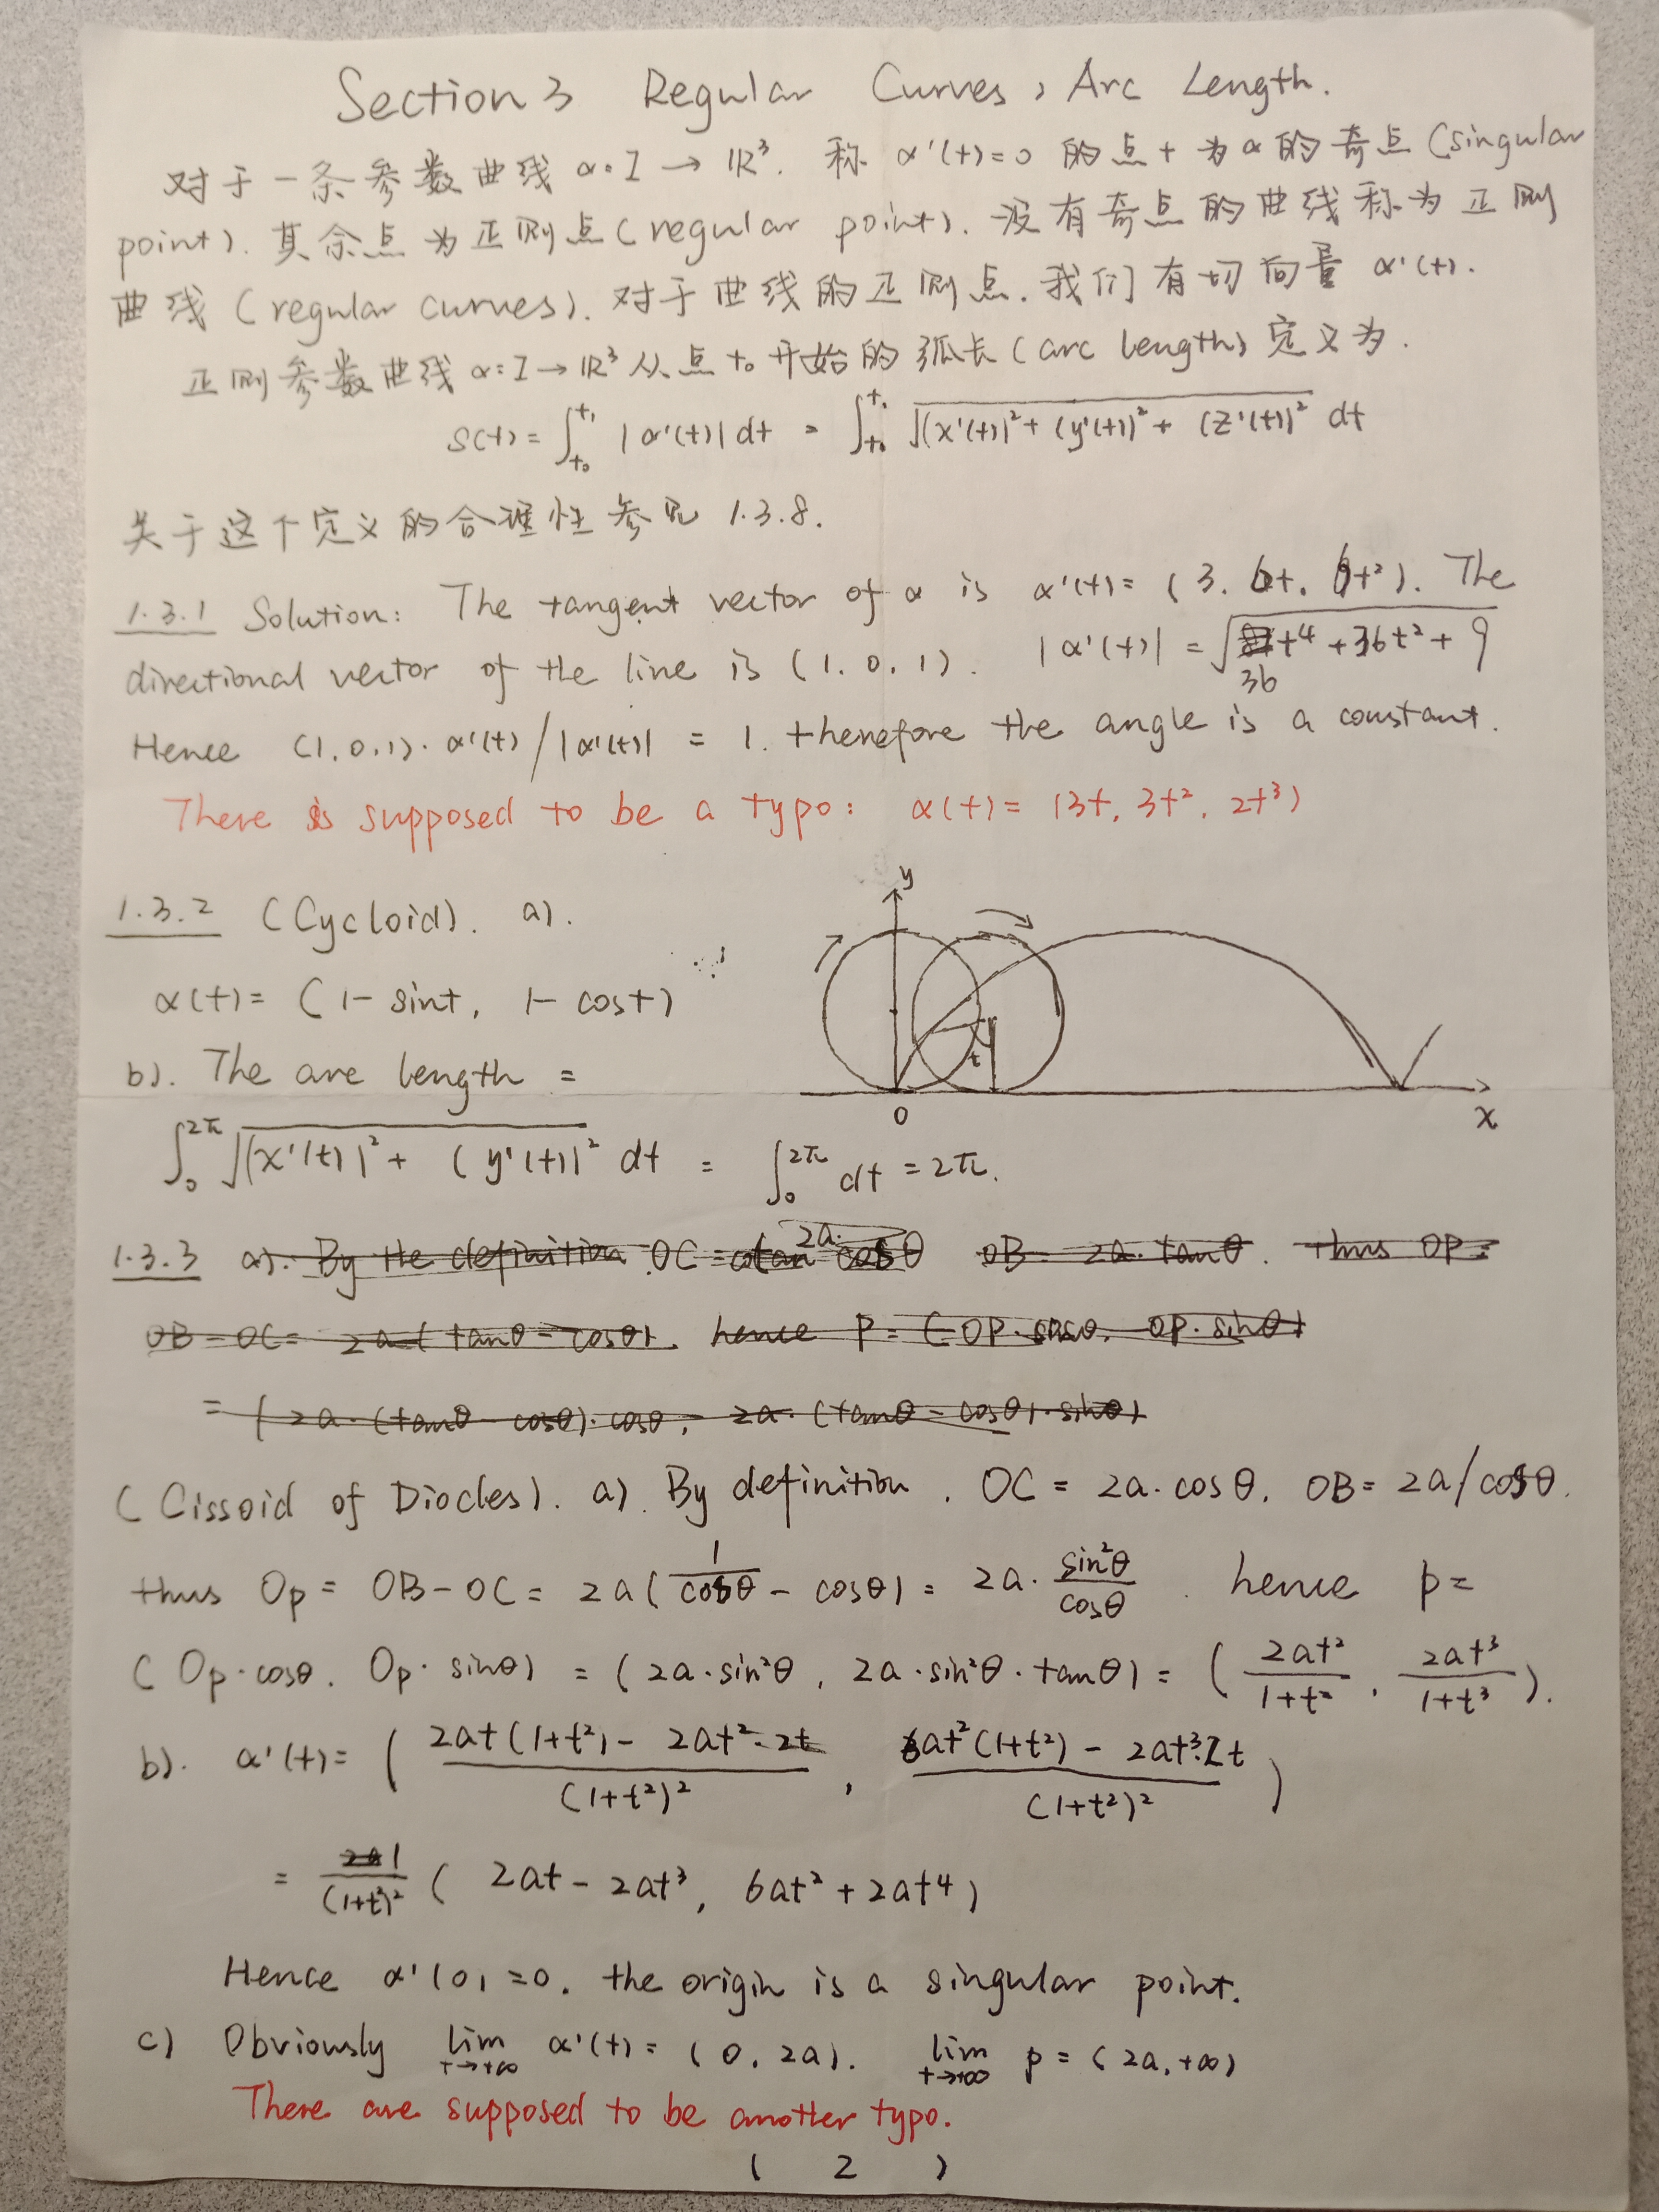 Section 3 Regular Curves, Arc Length.
对于一条参数曲线 α: I → ℝ³. 称 α'(t)=0 的点 t 为 α 的奇点 (singular
point). 其余点为正则点 (regular point). 没有奇点的曲线称为正则
曲线 (regular curves). 对于曲线的正则点. 我们有切向量 α'(t).
正则参数曲线 α: I → ℝ³ 从点 t₀ 开始的弧长 (arc length) 定义为.
S(t) = ∫_{t₀}^{t₁} |α'(t)| dt = ∫_{t₀}^{t₁} √((x'(t))² + (y'(t))² + (z'(t))²) dt
关于这个定义的合理性参见 1.3.8.
1.3.1 Solution: The tangent vector of α is α'(t) = (3. 6t. 6t²). The
directional vector of the line is (1. 0. 1). |α'(t)| = √(36t⁴ + 36t² + 9)
Hence (1. 0. 1) · α'(t) / |α'(t)| = 1. therefore the angle is a constant.
There is supposed to be a typo: α(t) = (3t. 3t². 2t³)
1.3.2 (Cycloid). a).
α(t) = (1 - sint, 1 - cost)
y
t
O
x
b). The arc length =
∫_0^{2π} √((x'(t))² + (y'(t))²) dt = ∫_0^{2π} dt = 2π.
1.3.3 a). By the definition OC = 2a· cosθ OB = 2a· tanθ. thus OP =
OB - OC = 2a (tanθ - cosθ). hence P = (OP·cosθ, OP·sinθ)
= (2a·(tanθ - cosθ)·cosθ, 2a·(tanθ - cosθ)·sinθ)
(Cissoid of Diocles). a). By definition, OC = 2a·cosθ. OB = 2a/cosθ.
thus Op = OB - OC = 2a(1/cosθ - cosθ) = 2a· sin²θ/cosθ. hence p =
(Op·cosθ. Op·sinθ) = (2a·sin²θ, 2a·sin²θ·tanθ) = (2at²/(1+t²), 2at³/(1+t³)).
b). α'(t) = ((2at(1+t²) - 2at²·2t)/(1+t²)², (6at²(1+t²) - 2at³·2t)/(1+t²)²)
= 1/(1+t²)² (2at - 2at³, 6at² + 2at⁴)
Hence α'(0) = 0. the origin is a singular point.
c) Obviously lim_{t→+∞} α'(t) = (0. 2a). lim_{t→+∞} p = (2a, +∞)
There are supposed to be another typo.
( 2 )